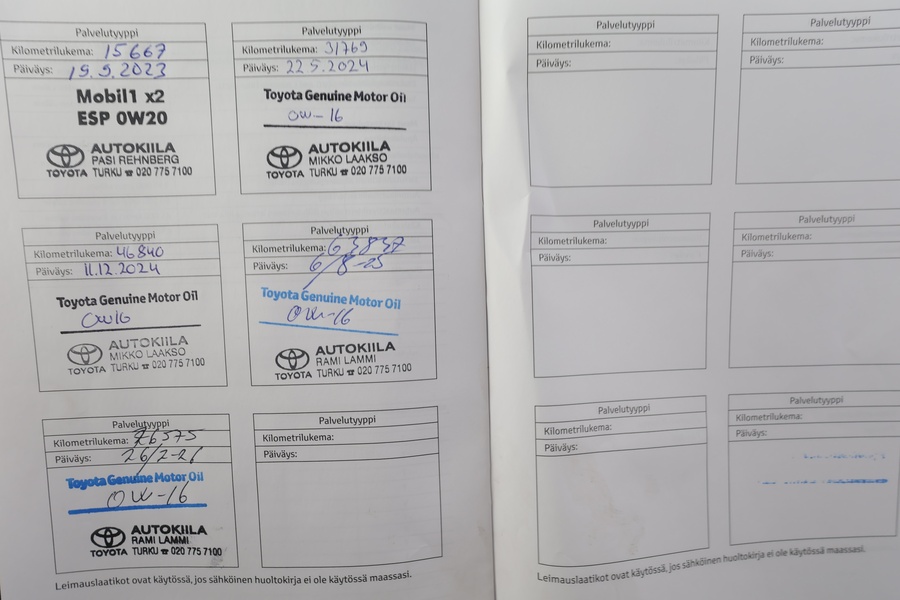 Palvelutyyppi
Kilometrilukema: 15667
Päiväys: 19.9.2023
Mobil1 x2
ESP 0W20
AUTOKIILA
PASI REHNBERG
TOYOTA TURKU ☎ 020 775 7100
Palvelutyyppi
Kilometrilukema: 31769
Päiväys: 22 5.2024
Toyota Genuine Motor Oil
0W-16
AUTOKIILA
MIKKO LAAKSO
TOYOTA TURKU ☎ 020 775 7100
Palvelutyyppi
Kilometrilukema: 46840
Päiväys: 11.12.2024
Toyota Genuine Motor Oil
0W16
AUTOKIILA
MIKKO LAAKSO
TOYOTA TURKU ☎ 020 775 7100
Palvelutyyppi
Kilometrilukema: 63837
Päiväys: 6/8-25
Toyota Genuine Motor Oil
0W-16
AUTOKIILA
RAMI LAMMI
TOYOTA TURKU ☎ 020 775 7100
Palvelutyyppi
Kilometrilukema: 76575
Päiväys: 26/2-26
Toyota Genuine Motor Oil
0W-16
AUTOKIILA
RAMI LAMMI
TOYOTA TURKU ☎ 020 775 7100
Palvelutyyppi
Kilometrilukema:
Päiväys:
Leimauslaatikot ovat käytössä, jos sähköinen huoltokirja ei ole käytössä maassasi.
Palvelutyyppi
Kilometrilukema:
Päiväys:
Palvelutyyppi
Kilometrilukema:
Päiväys:
Palvelutyyppi
Kilometrilukema:
Päiväys:
Palvelutyyppi
Kilometrilukema:
Päiväys:
Palvelutyyppi
Kilometrilukema:
Päiväys:
Palvelutyyppi
Kilometrilukema:
Päiväys:
Leimauslaatikot ovat käytössä, jos sähköinen huoltokirja ei ole käytössä maassasi.